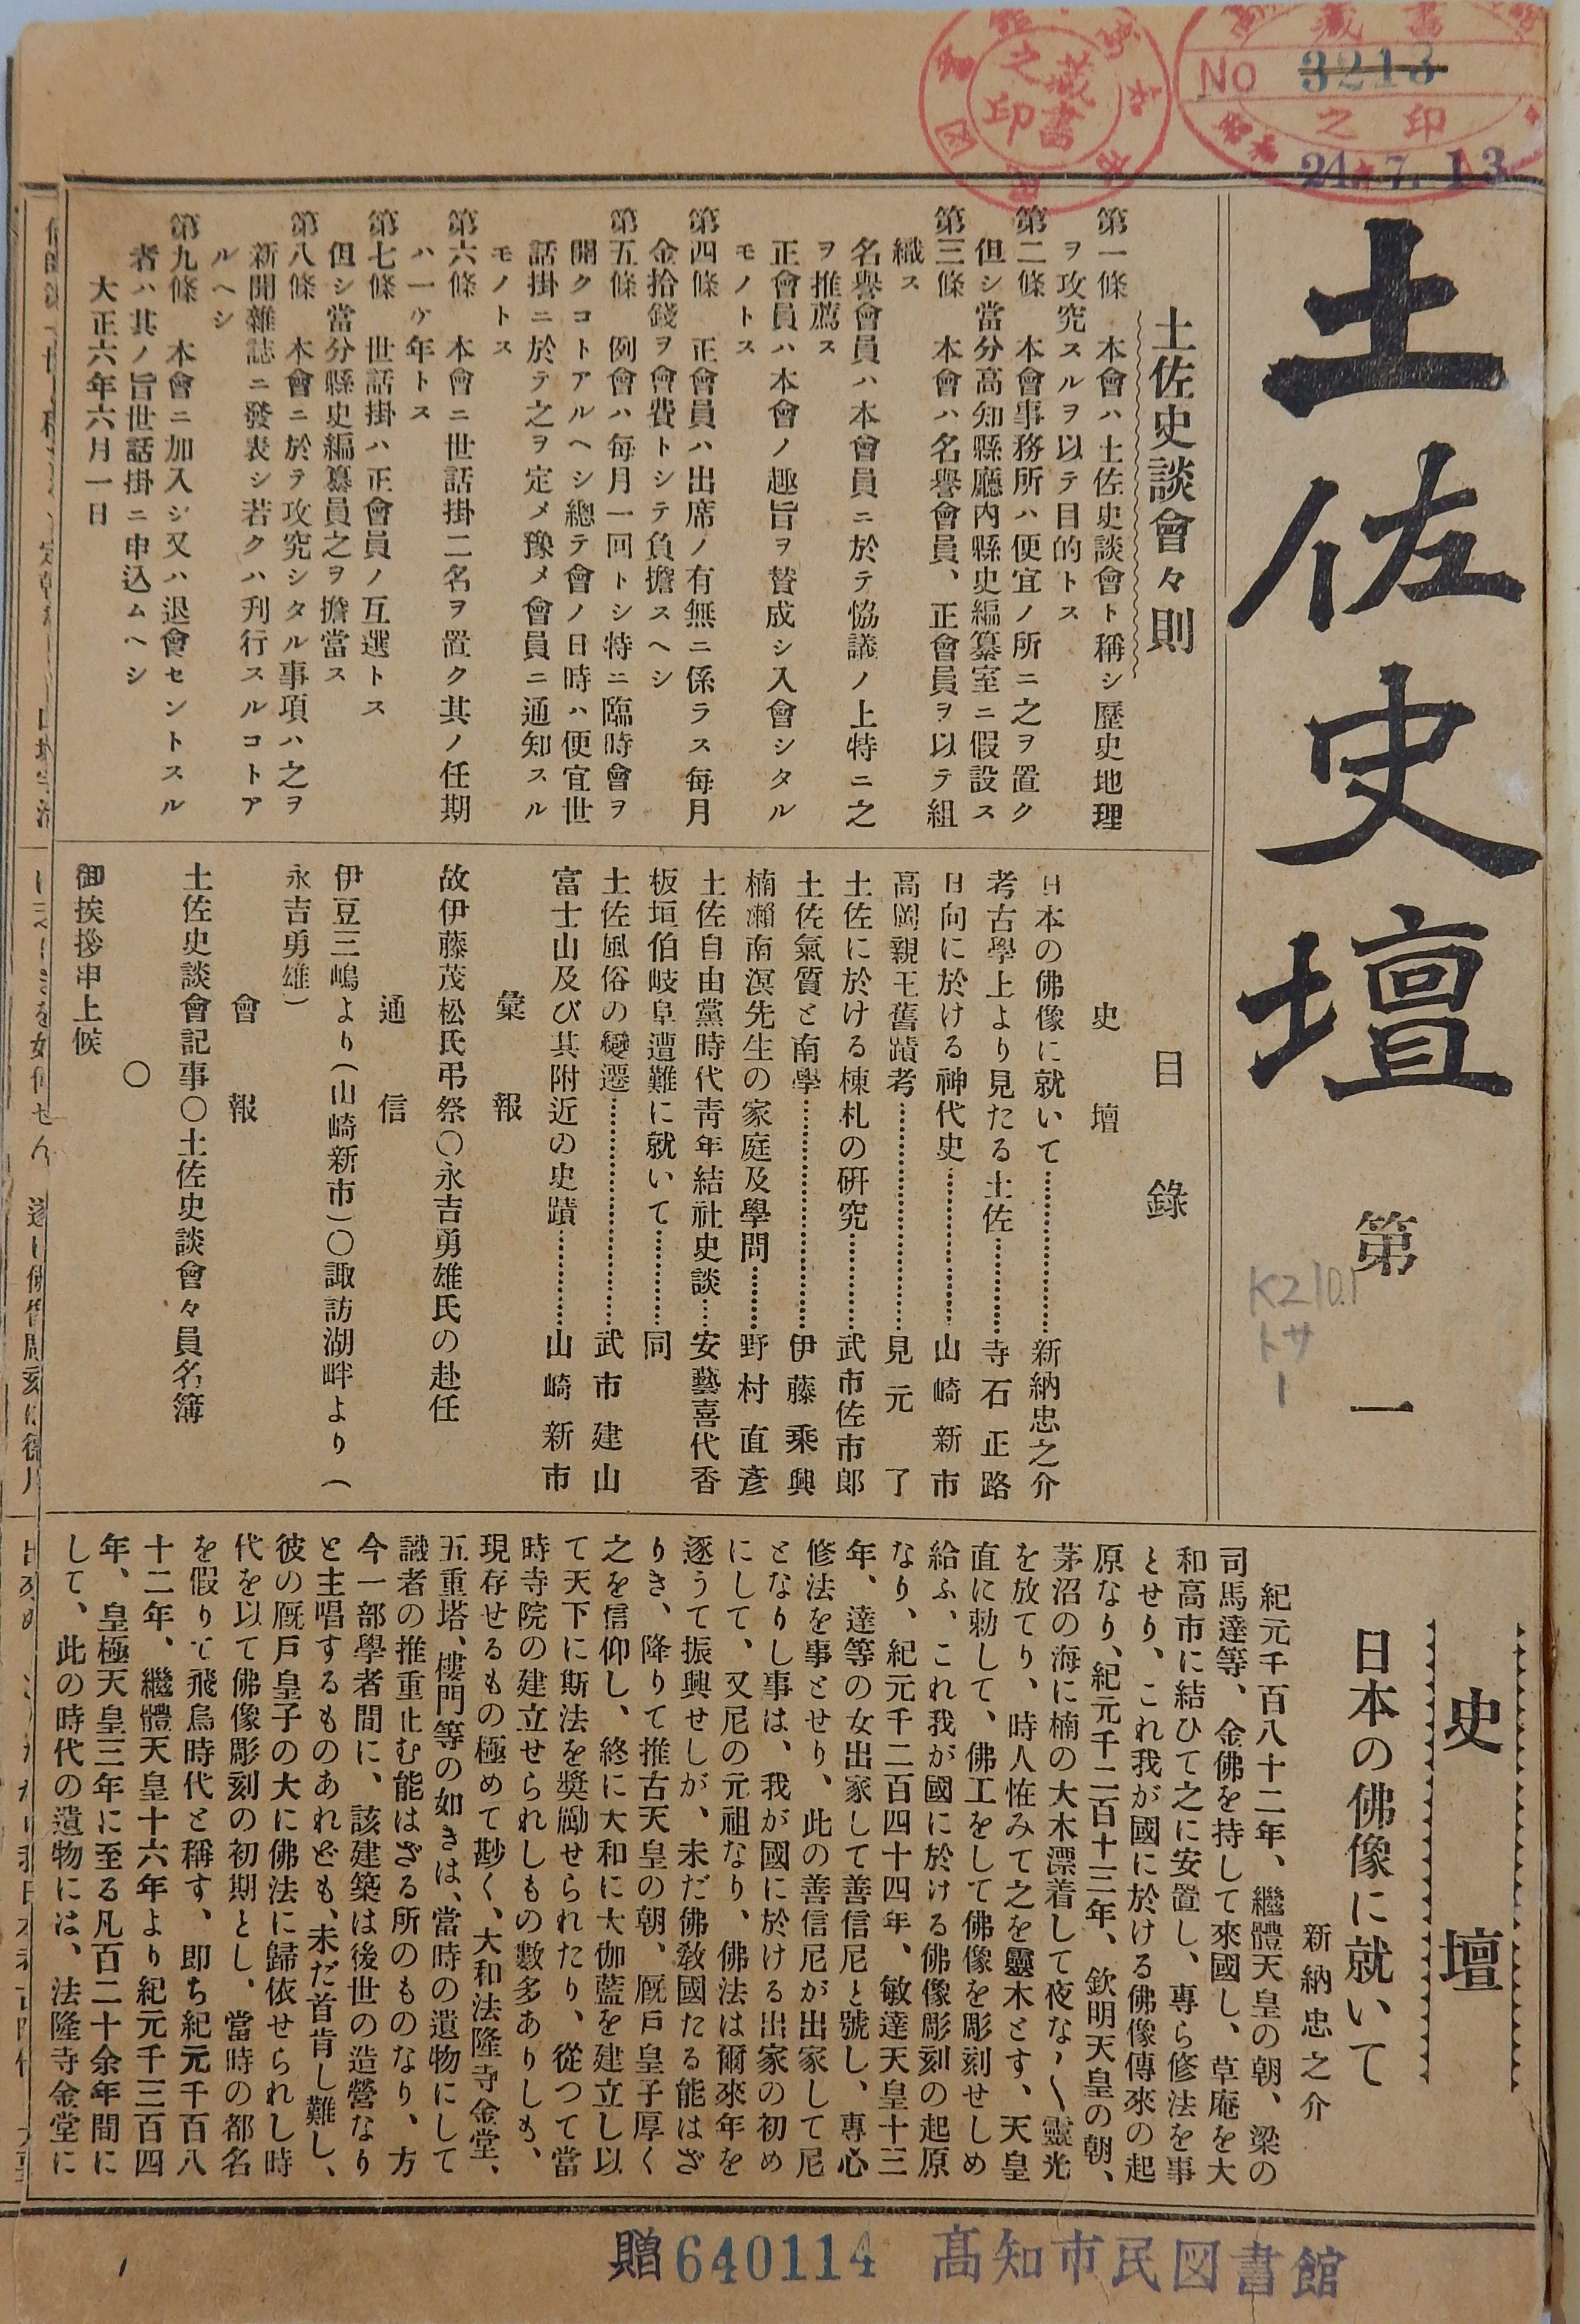 土佐史壇 第一
藏書
NO 3213
之印
24.7.13
藏書之印
K210.1
トサ
1
土佐史談會々則
第一條 本會ハ土佐史談會ト稱シ歷史地理
ヲ攻究スルヲ以テ目的トス
第二條 本會事務所ハ便宜ノ所ニ之ヲ置ク
但シ當分高知縣廳內縣史編纂室ニ假設ス
第三條 本會ハ名譽會員、正會員ヲ以テ組
織ス
名譽會員ハ本會員ニ於テ恊議ノ上特ニ之
ヲ推薦ス
正會員ハ本會ノ趣旨ヲ贊成シ入會シタル
モノトス
第四條 正會員ハ出席ノ有無ニ係ラス每月
金拾錢ヲ會費トシテ負擔スヘシ
第五條 例會ハ每月一回トシ特ニ臨時會ヲ
開クコトアルヘシ總テ會ノ日時ハ便宜世
話掛ニ於テ之ヲ定メ豫メ會員ニ通知スル
モノトス
第六條 本會ニ世話掛二名ヲ置ク其ノ任期
ハ一ケ年トス
第七條 世話掛ハ正會員ノ互選トス
但シ當分縣史編纂員之ヲ擔當ス
第八條 本會ニ於テ攻究シタル事項ハ之ヲ
新聞雜誌ニ發表シ若クハ刋行スルコトア
ルヘシ
第九條 本會ニ加入シ又ハ退會セントスル
者ハ其ノ旨世話掛ニ申込ムヘシ
大正六年六月一日
目錄
史壇
日本の佛像に就いて…………新納忠之介
考古學上より見たる土佐…………寺石正路
日向に於ける神代史…………山崎新市
高岡親王舊蹟考…………見元了
土佐に於ける棟札の硏究…………武市佐市郎
土佐氣質と南學…………伊藤乘興
楠瀨南溟先生の家庭及學問…………野村直彥
土佐自由黨時代靑年結社史談……安藝喜代香
板垣伯岐阜遭難に就いて…………同
土佐風俗の變遷…………武市建山
富士山及び其附近の史蹟…………山崎新市
彙報
故伊藤茂松氏弔祭〇永吉勇雄氏の赴任
通信
伊豆三嶋より(山崎新市)〇諏訪湖畔より(
永吉勇雄)
會報
土佐史談會記事〇土佐史談會々員名簿
〇
御挨拶申上候
史壇
日本の佛像に就いて
新納忠之介
紀元千百八十二年、繼體天皇の朝、梁の
司馬達等、金佛を持して來國し、草庵を大
和高市に結ひて之に安置し、專ら修法を事
とせり、これ我が國に於ける佛像傳來の起
原なり、紀元千二百十三年、欽明天皇の朝、
茅沼の海に楠の大木漂着して夜な〱靈光
を放てり、時人恠みて之を靈木とす、天皇
直に勅して、佛工をして佛像を彫刻せしめ
給ふ、これ我が國に於ける佛像彫刻の起原
なり、紀元千二百四十四年、敏達天皇十三
年、達等の女出家して善信尼と號し、專心
修法を事とせり、此の善信尼が出家して尼
となりし事は、我が國に於ける出家の初め
にして、又尼の元祖なり、佛法は爾來年を
逐うて振興せしが、未だ佛敎國たる能はざ
りき、降りて推古天皇の朝、厩戶皇子厚く
之を信仰し、終に大和に大伽藍を建立し以
て天下に斯法を奬勵せられたり、從つて當
時寺院の建立せられしもの數多ありしも、
現存せるもの極めて尠く、大和法隆寺金堂、
五重塔、樓門等の如きは、當時の遺物にして
識者の推重止む能はざる所のものなり、方
今一部學者間に、該建築は後世の造營なり
と主唱するものあれども、未だ首肯し難し、
彼の厩戶皇子の大に佛法に歸依せられし時
代を以て佛像彫刻の初期とし、當時の都名
を假りて飛鳥時代と稱す、即ち紀元千百八
十二年、繼體天皇十六年より紀元千三百四
年、皇極天皇三年に至る凡百二十余年間に
して、此の時代の遺物には、法隆寺金堂に
贈640114 高知市民図書館